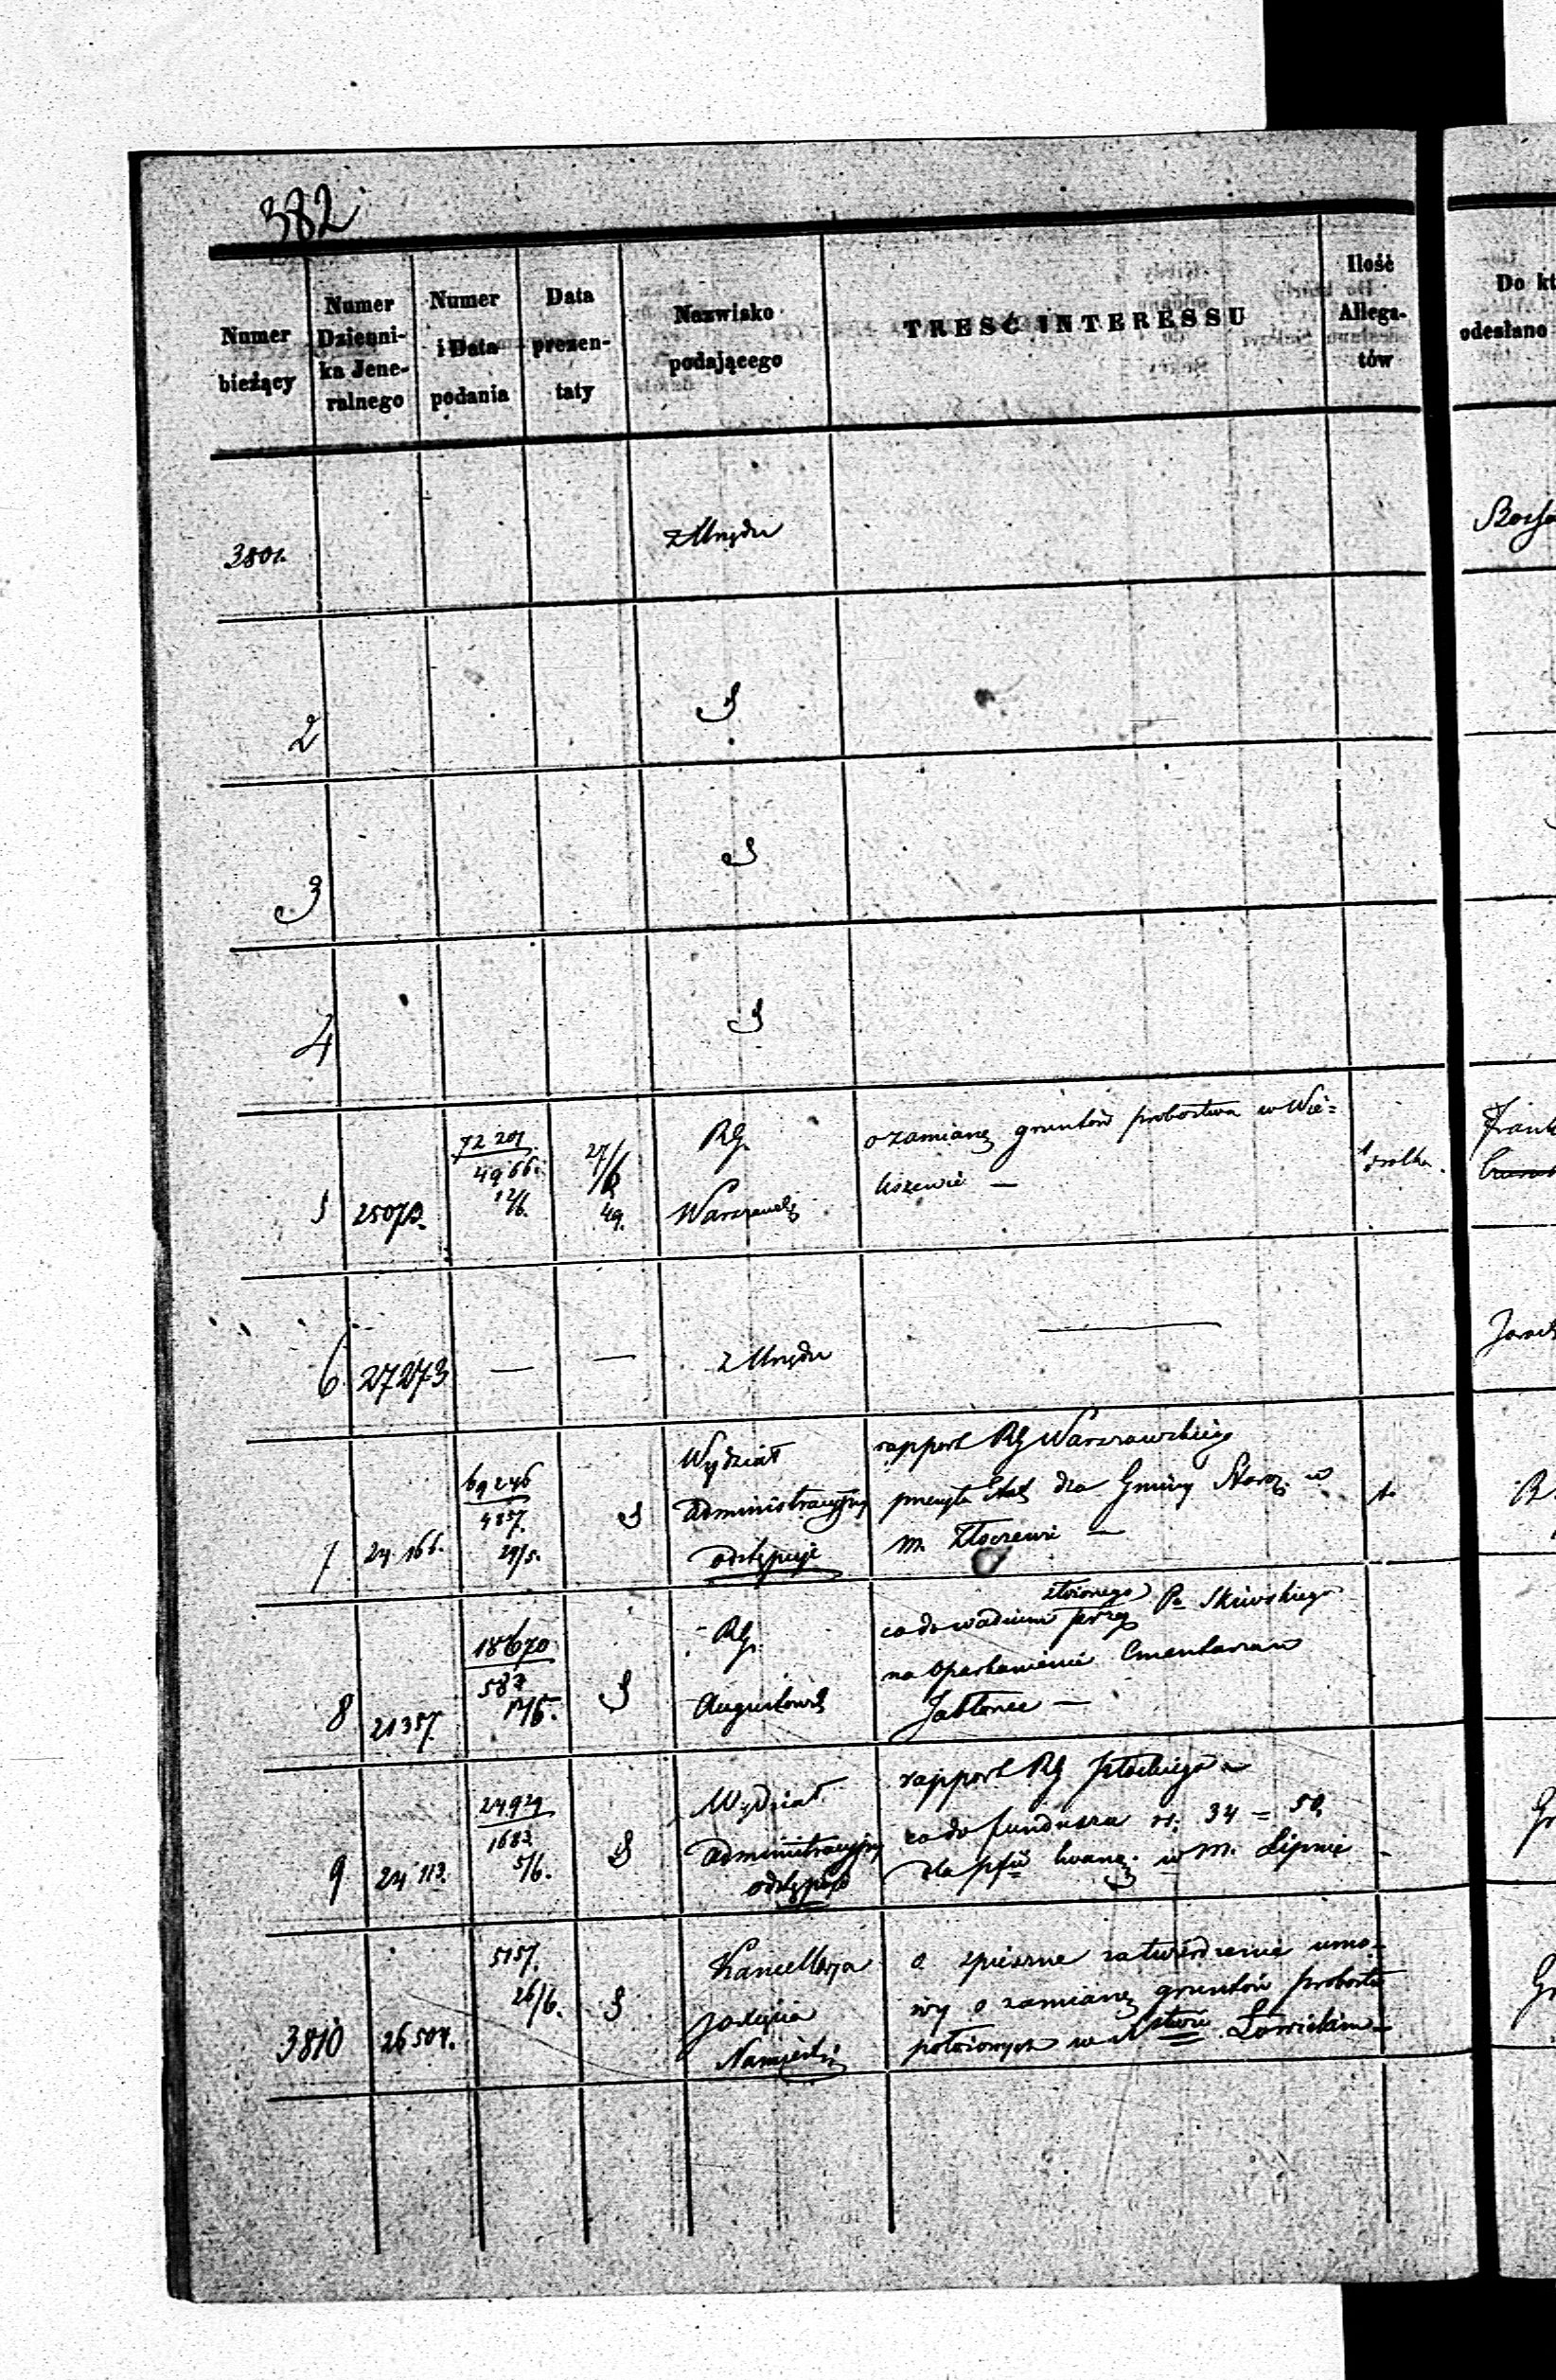 382
Numer bieżący
Numer Dziennika Jeneralnego
Numer i Data podania
Data prezentaty
Nazwisko podającego
TREŚĆ INTERESSU
Ilość Allegatów
Do kt
odesłano
3801. z Urzędu
2
3
4
5 25073. 72201 4966. 12/6. 27/6 49. RG. Warszawski
o zamianę gruntów probostwa w Wie=
liszewie —
Frank
6. 27273 — — z Urzędu —
7 24166. 69246 4857. 29/5. Wydział
administracyjny
odstępuje
rapport RG Warszawskiego
dla Gminy Staroz. w
m. Złoczewie — 1.
8 21357. 18670 587 12/5. RG.
Augustowski
co do wadium złożonego przez Pa Skiwskiego
na oparkanienie Cmentarza w
Jabłonce —
9 24113. 24929 1683. 5/6. Wydział
administracyjny
odstępuje
rapport RG Płockiego
co do funduszu rs. 34 = 50
dla w m. Lipnie
3810 26504. 5157. 26/6. Kancellarya
Xcięcia
Namiestn.
o spieszne zatwierdzenie umo=
wy o zamianę gruntów
położonych w Xstwie Łowickim —